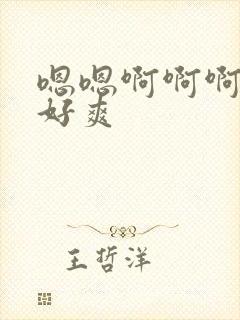 嗯嗯啊啊啊
好爽
王哲洋